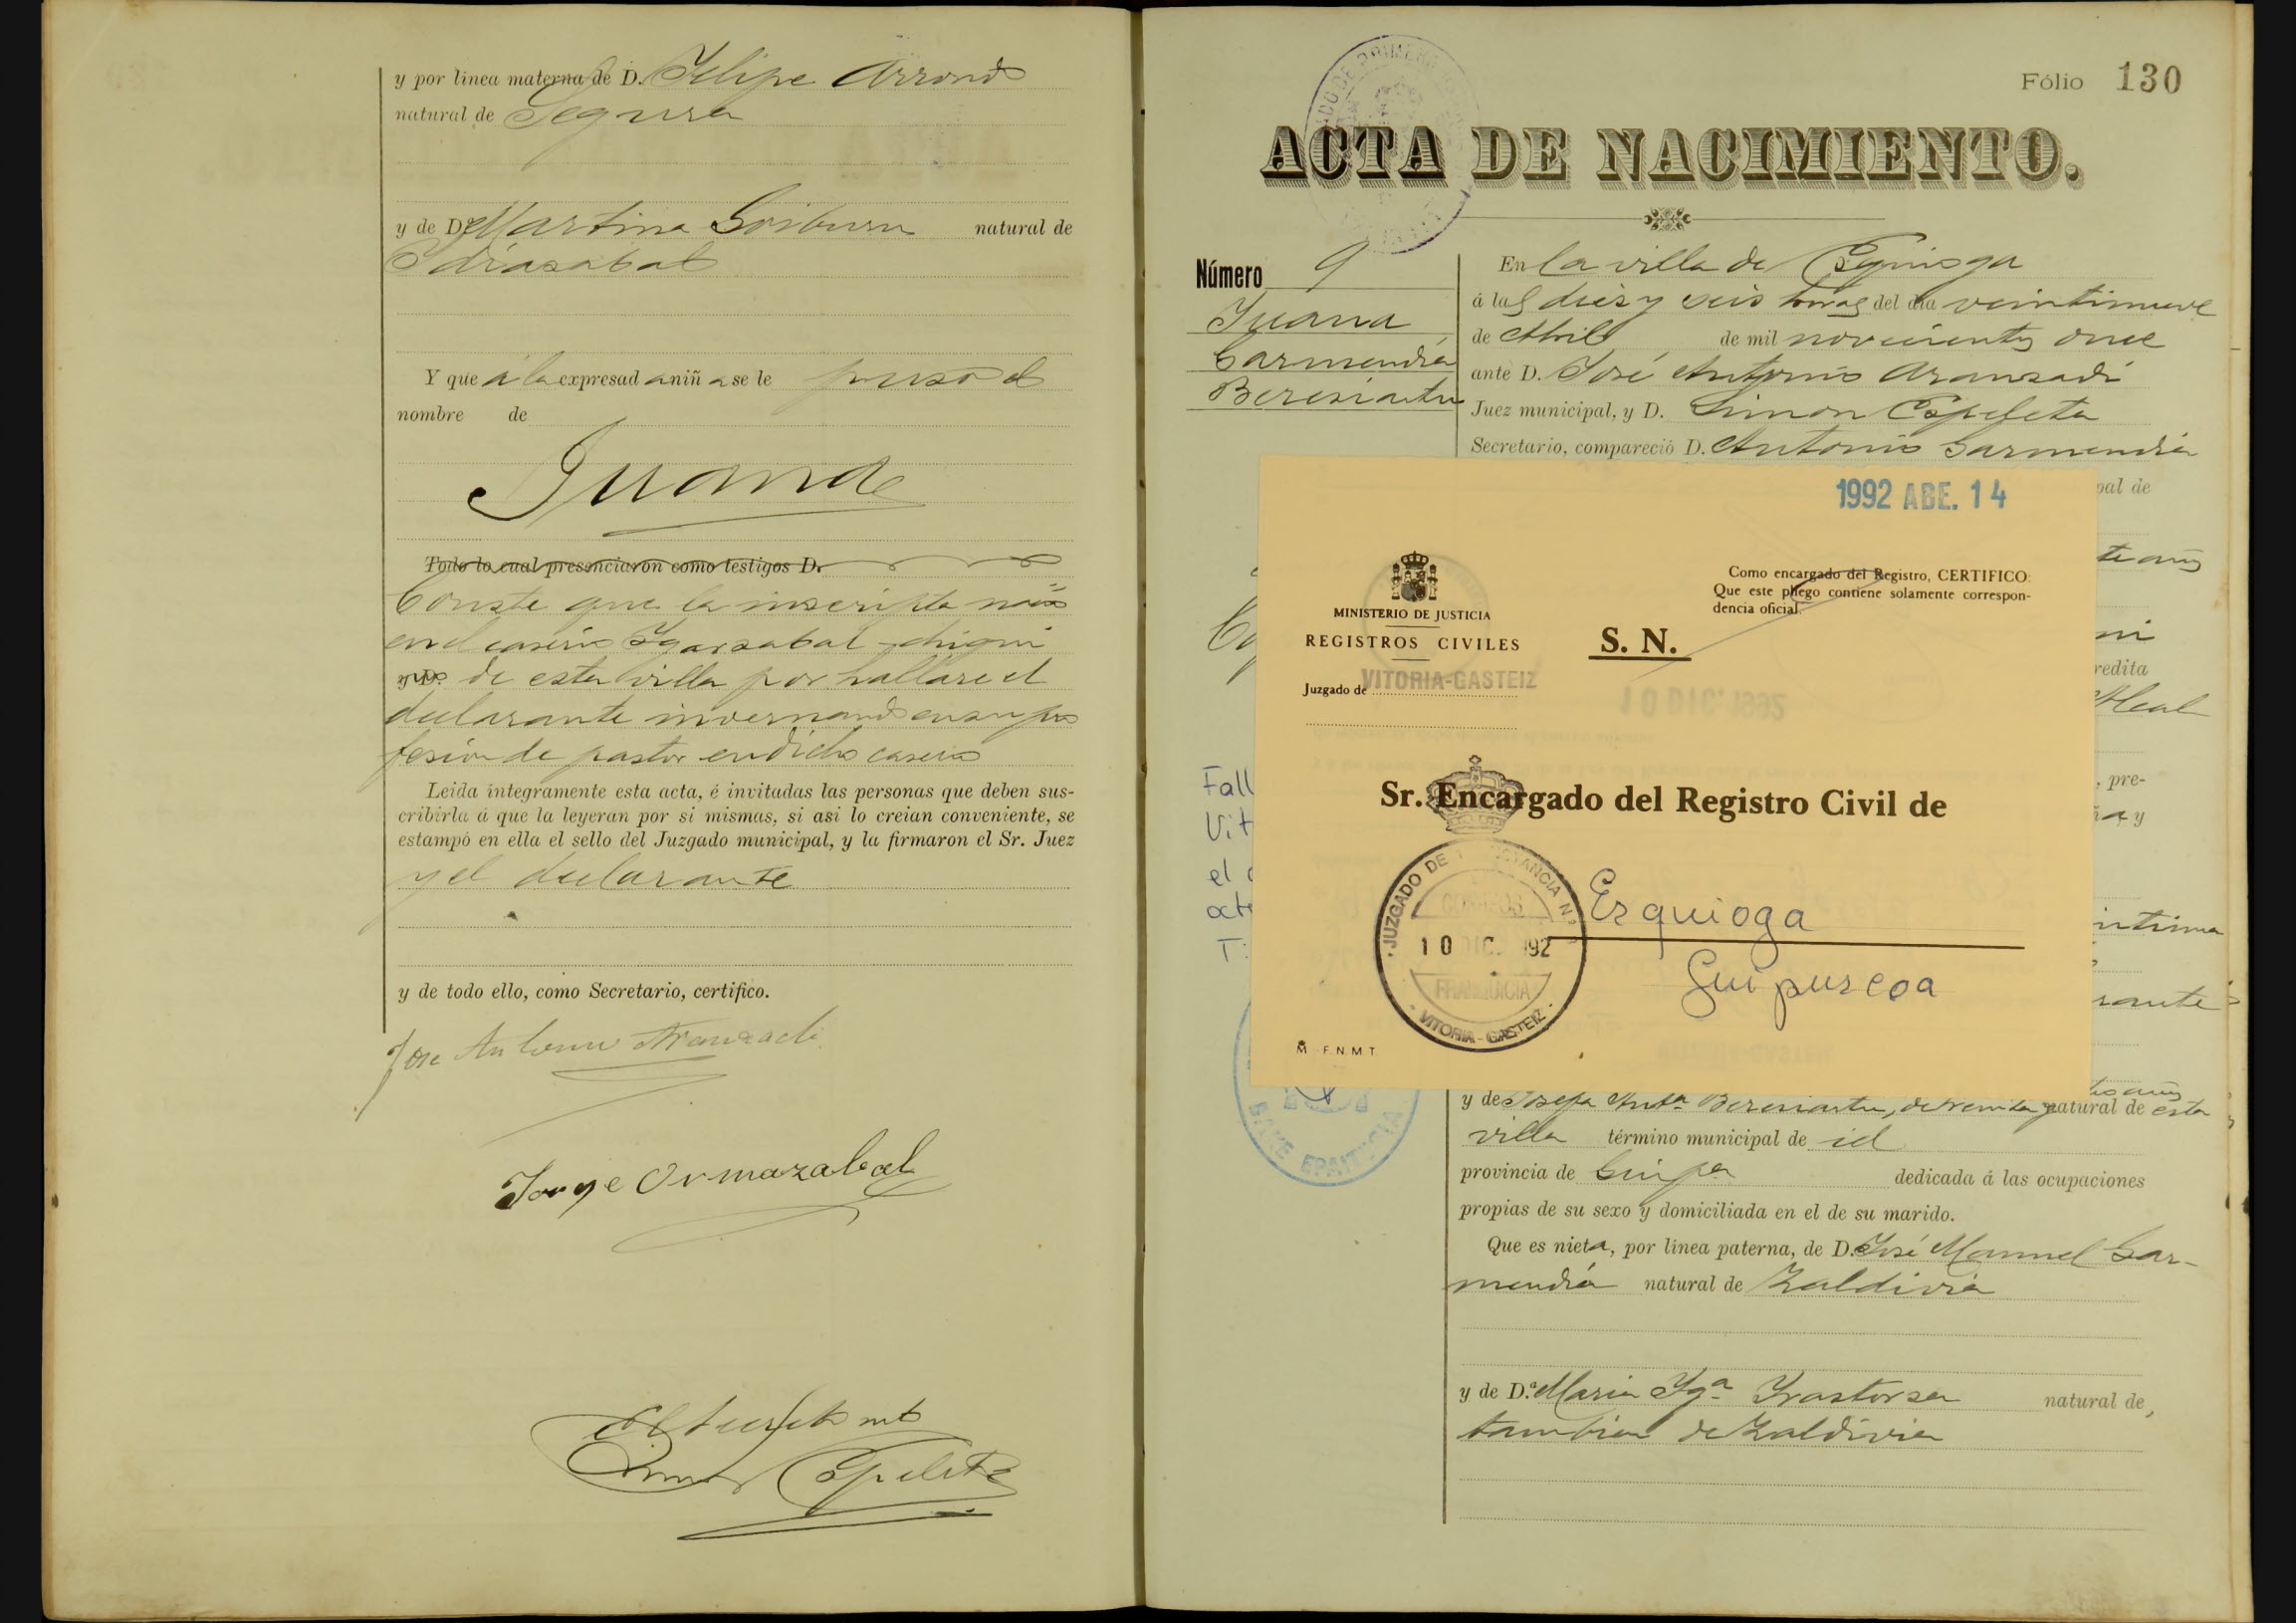 y por línea materna de D. Felipe Arrondo
natural de Segura
y de D.ª Martina Goiburu natural de
Idiazabal
Y que á la expresada niña se le puso el
nombre de
Juana
Todo lo cual presenciaron como testigos D.
Conste que la inscripta nació
en el caserio Igarzabal-chiqui
y D. de esta villa por hallarse el
declarante invernando en su pro
fesión de pastor en dicho caserio
Leida integramente esta acta, é invitadas las personas que deben sus-
cribirla á que la leyeran por si mismas, si asi lo creian conveniente, se
estampó en ella el sello del Juzgado municipal, y la firmaron el Sr. Juez
y el declarante
y de todo ello, como Secretario, certifico.
Jose Antonio Aranzadi
Jorge Ormazabal
Simon Espeleta
Fólio 130
ACTA DE NACIMIENTO.
Número 9
Juana
Garmendia
Beresiartu
En la villa de Ezquioga
á las diez y seis horas del dia veintinueve
de Abril de mil novecientos once
ante D. José Antonio Aranzadi
Juez municipal, y D. Simon Espeleta
Secretario, compareció D. Antonio Garmendia
pal de
te años
redita
, pre-
ña y
rante
Fall
Vit
el
octu
1992 ABE. 14
MINISTERIO DE JUSTICIA
REGISTROS CIVILES
Juzgado de VITORIA-GASTEIZ
Como encargado del Registro, CERTIFICO:
Que este pliego contiene solamente correspon-
dencia oficial.
S. N.
10 DIC. 1995
Sr. Encargado del Registro Civil de
JUZGADO DE INSTANCIA N.º
CORREOS
10 DIC. 1992
FRANQUICIA
VITORIA-GASTEIZ
Ezquioga
Guipuzcoa
F.N.M.T.
BAKE EPAITEGIA
tos años
y de Josefa Ant.ª Beresiartu, de treinta y natural de esta
villa término municipal de id
provincia de Guip.a dedicada á las ocupaciones
propias de su sexo y domiciliada en el de su marido.
Que es nieta, por línea paterna, de D. José Manuel Gar-
mendia natural de Zaldivia
y de D.ª Maria Ig.ª Irastorza natural de
tambien de Zaldivia